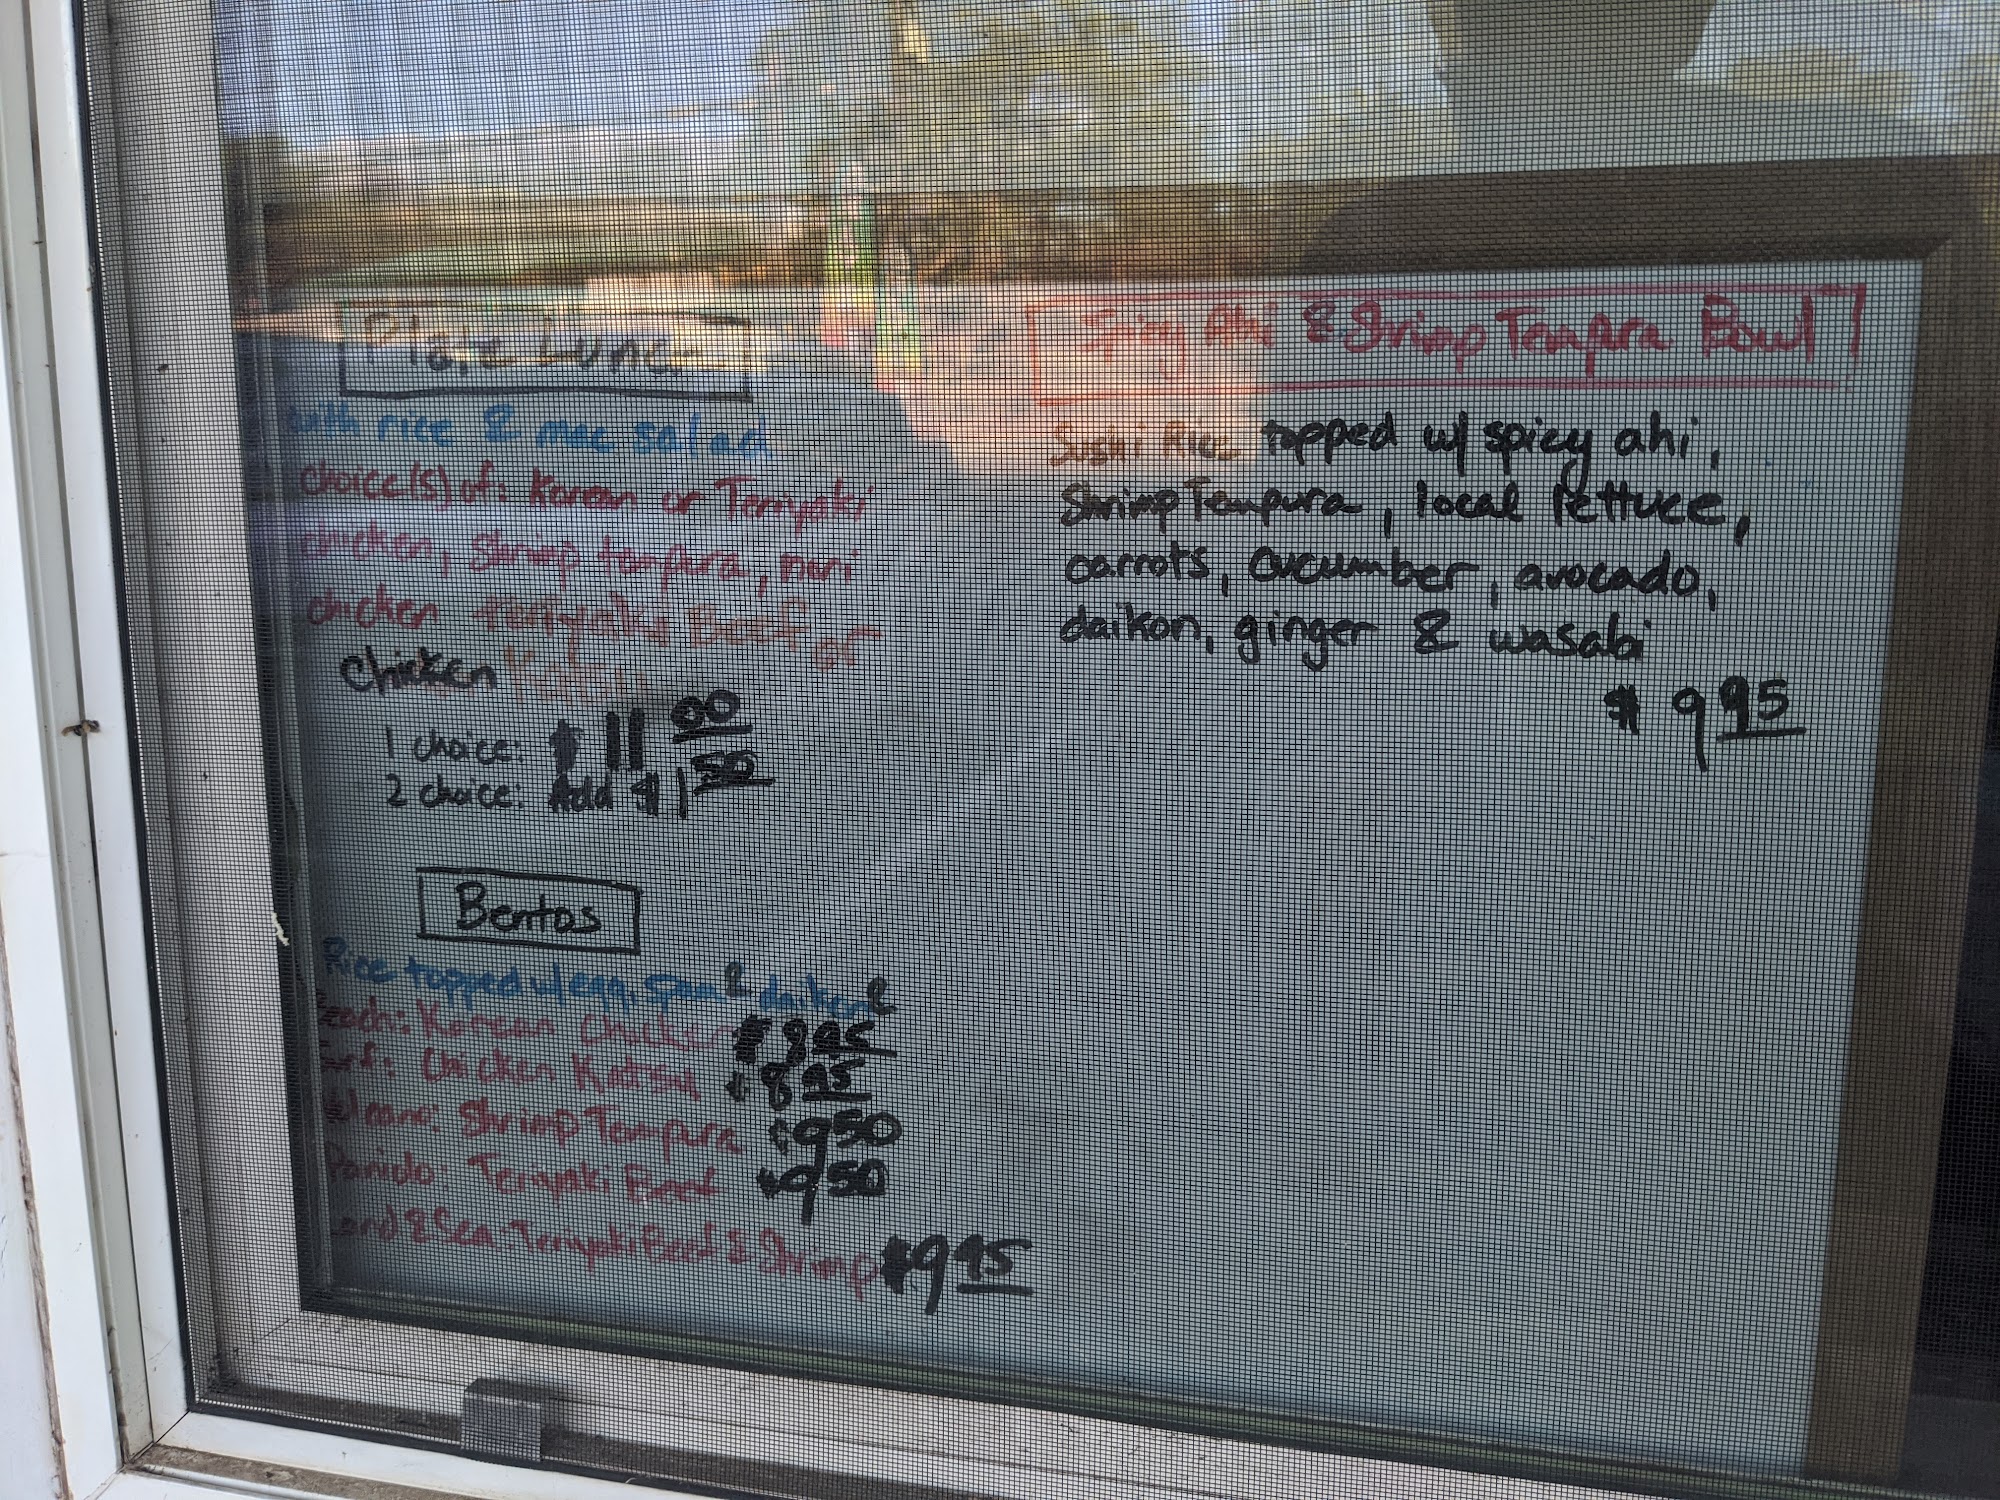 Plate Lunch
with rice & mac salad
choice(s) of: Korean or Teriyaki
chicken, Shrimp tempura, nori
chicken Teriyaki Beef or
Chicken Katsu
1 choice: $11 00
2 choice: Add $1 50
Bentos
Rice topped w/ egg, spam & daikon &
Korean Chicken $8 95
Chicken Katsu $8 95
Shrimp Tempura $9 50
Teriyaki Beef $9 50
Land & Sea: Teriyaki Beef & Shrimp $9 95
Spicy Ahi & Shrimp Tempura Bowl
Sushi Rice topped w/ spicy ahi,
Shrimp Tempura, local lettuce,
carrots, cucumber, avocado,
daikon, ginger & wasabi
$9 95